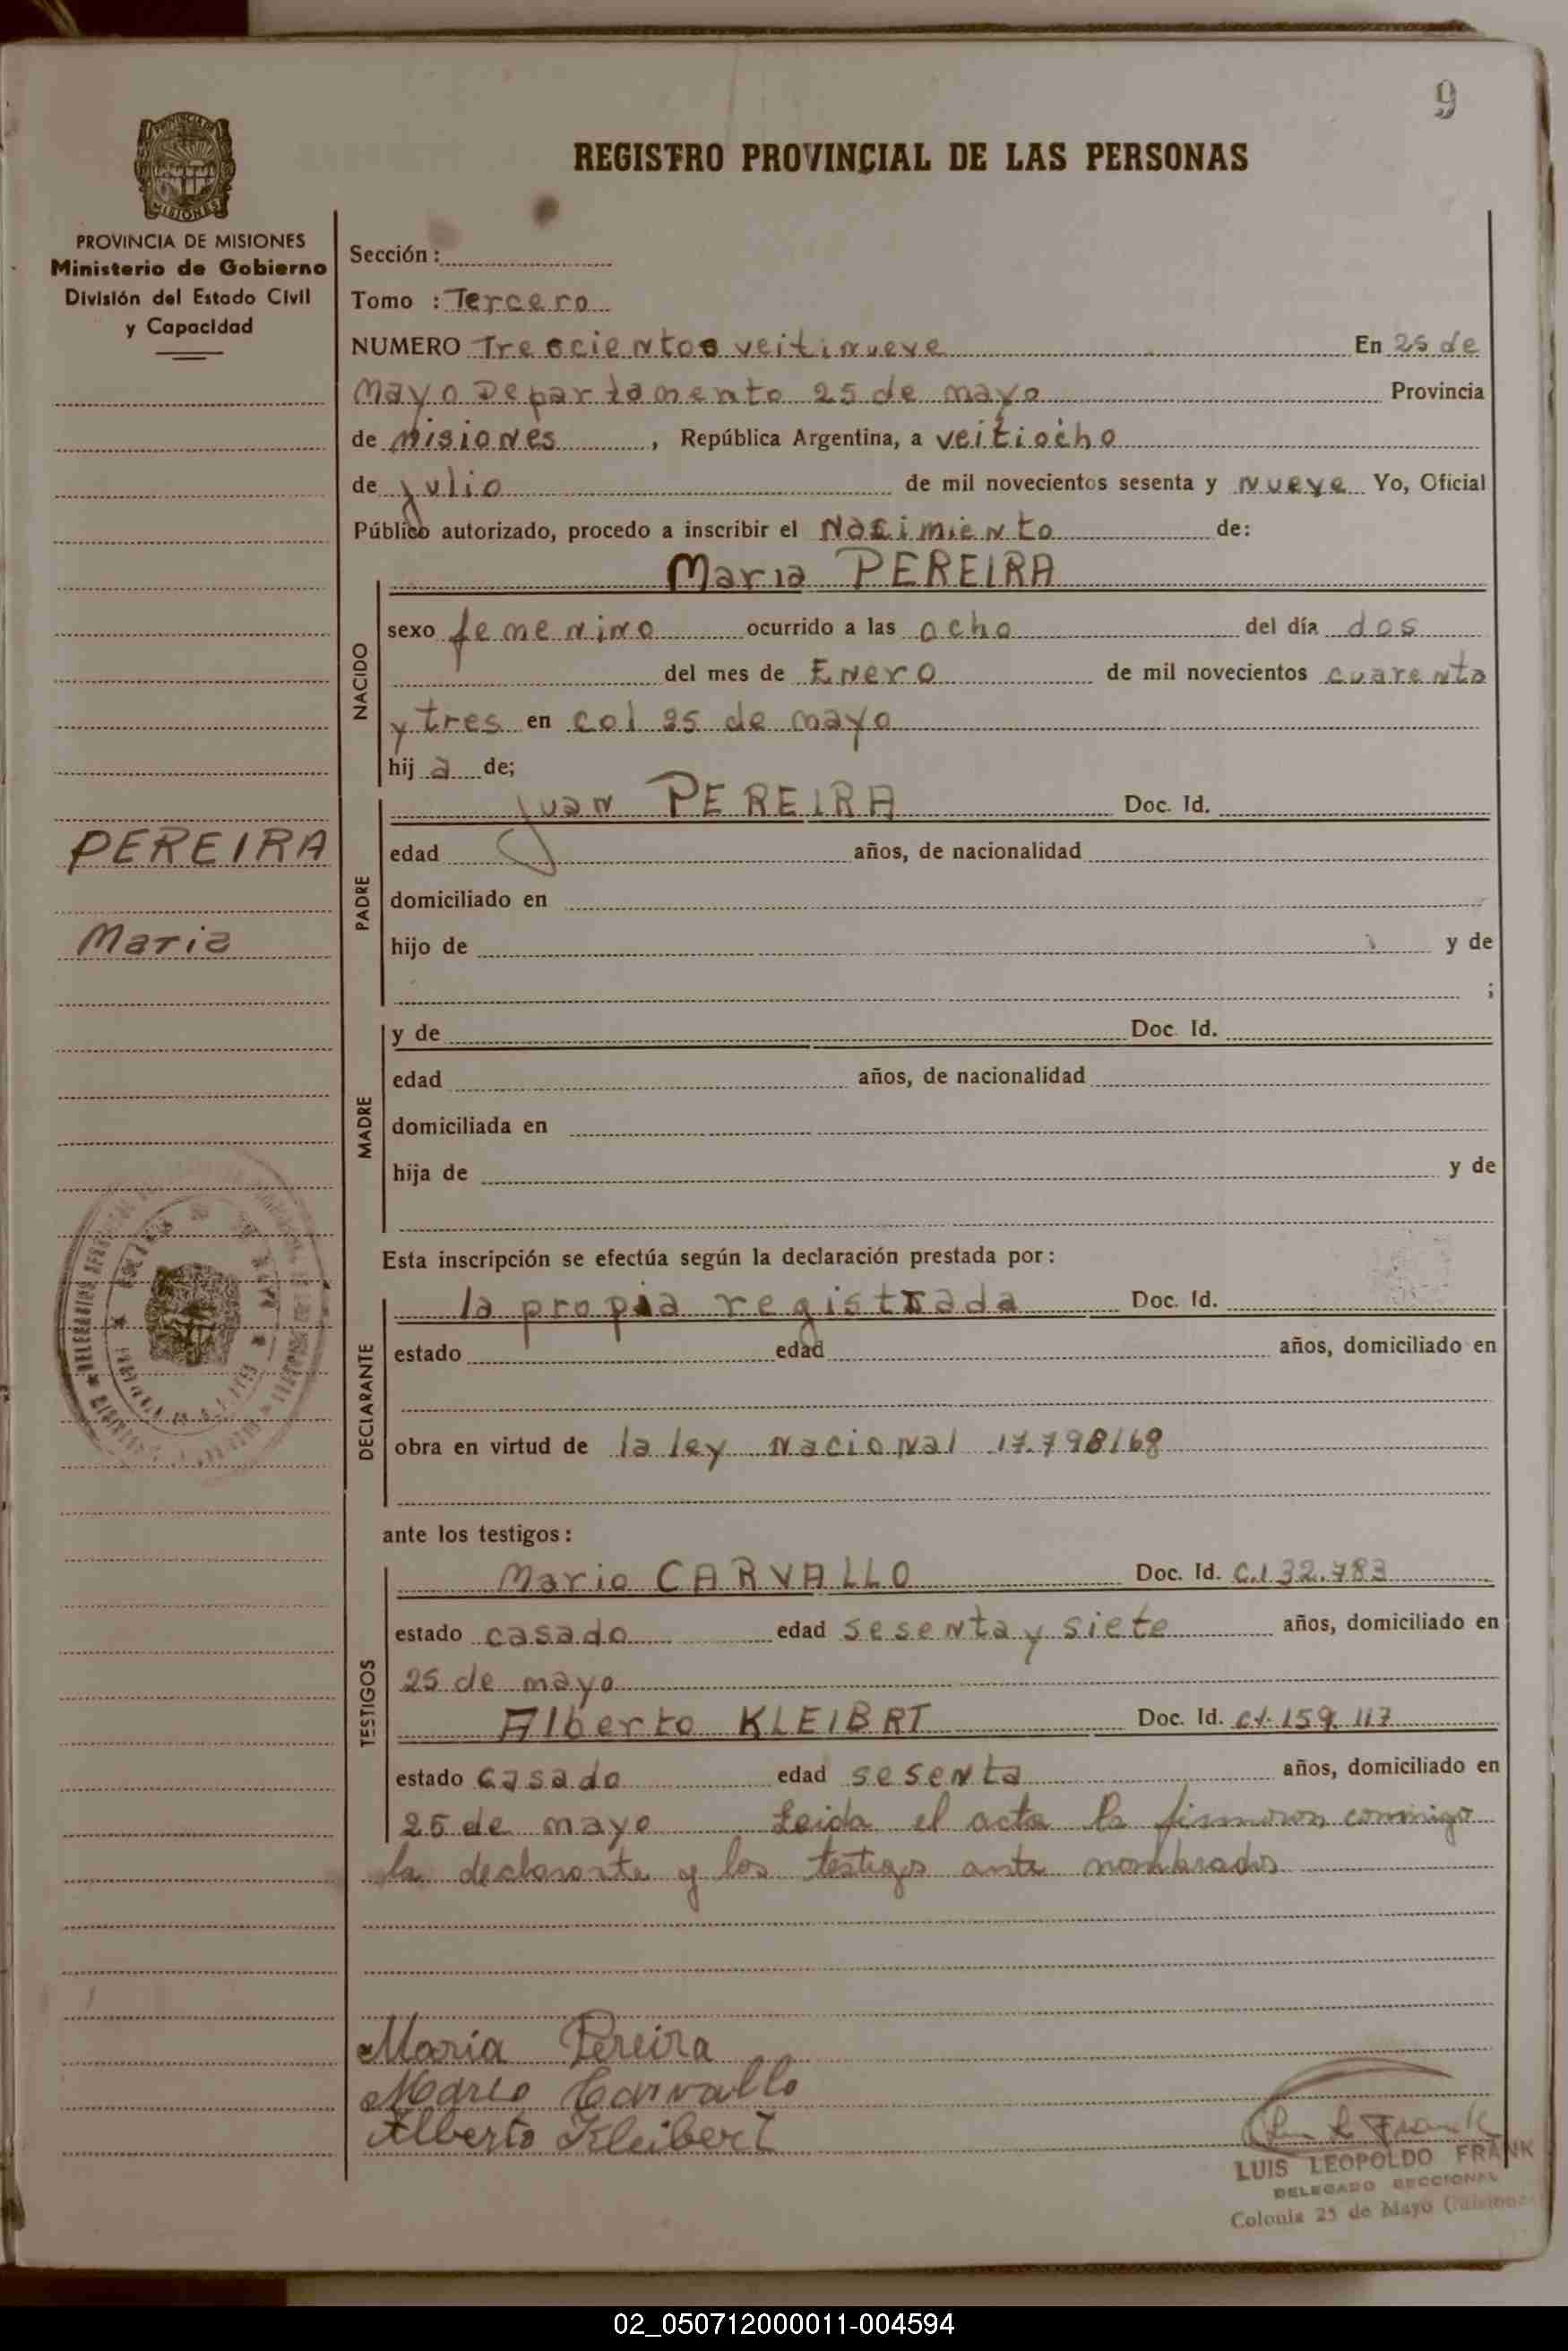 9
REGISTRO PROVINCIAL DE LAS PERSONAS
MISIONES
PROVINCIA DE MISIONES
Ministerio de Gobierno
División del Estado Civil
y Capacidad
PEREIRA
Maria
Sección :
Tomo : Tercero
NUMERO Trescientos veitinueve En 25 de
Mayo Departamento 25 de mayo Provincia
de Misiones , República Argentina, a veitiocho
de julio de mil novecientos sesenta y nueve Yo, Oficial
Público autorizado, procedo a inscribir el Nacimiento de:
Maria PEREIRA
NACIDO
sexo femenino ocurrido a las ocho del día dos
del mes de Enero de mil novecientos cuarenta
y tres en col 25 de mayo
hij a de;
PADRE
Juan PEREIRA Doc. Id.
edad años, de nacionalidad
domiciliado en
hijo de y de
;
MADRE
y de Doc Id.
edad años, de nacionalidad
domiciliada en
hija de y de
Esta inscripción se efectúa según la declaración prestada por:
DECLARANTE
la propia registrada Doc. Id.
estado edad años, domiciliado en
obra en virtud de la ley nacional 17.798/68
ante los testigos:
TESTIGOS
Mario CARVALLO Doc. Id. C.I 32.783
estado casado edad sesenta y siete años, domiciliado en
25 de mayo
Alberto KLEIBRT Doc. Id. C.I. 159.117
estado casado edad sesenta años, domiciliado en
25 de mayo Leida el acta la firmaron conmigo
la declarante y los testigos ante nombrados
Maria Pereira
Mario Carvallo
Alberto Kleibert
L. L. Frank
LUIS LEOPOLDO FRANK
DELEGADO SECCIONAL
Colonia 25 de Mayo (Misiones
02_050712000011-004594